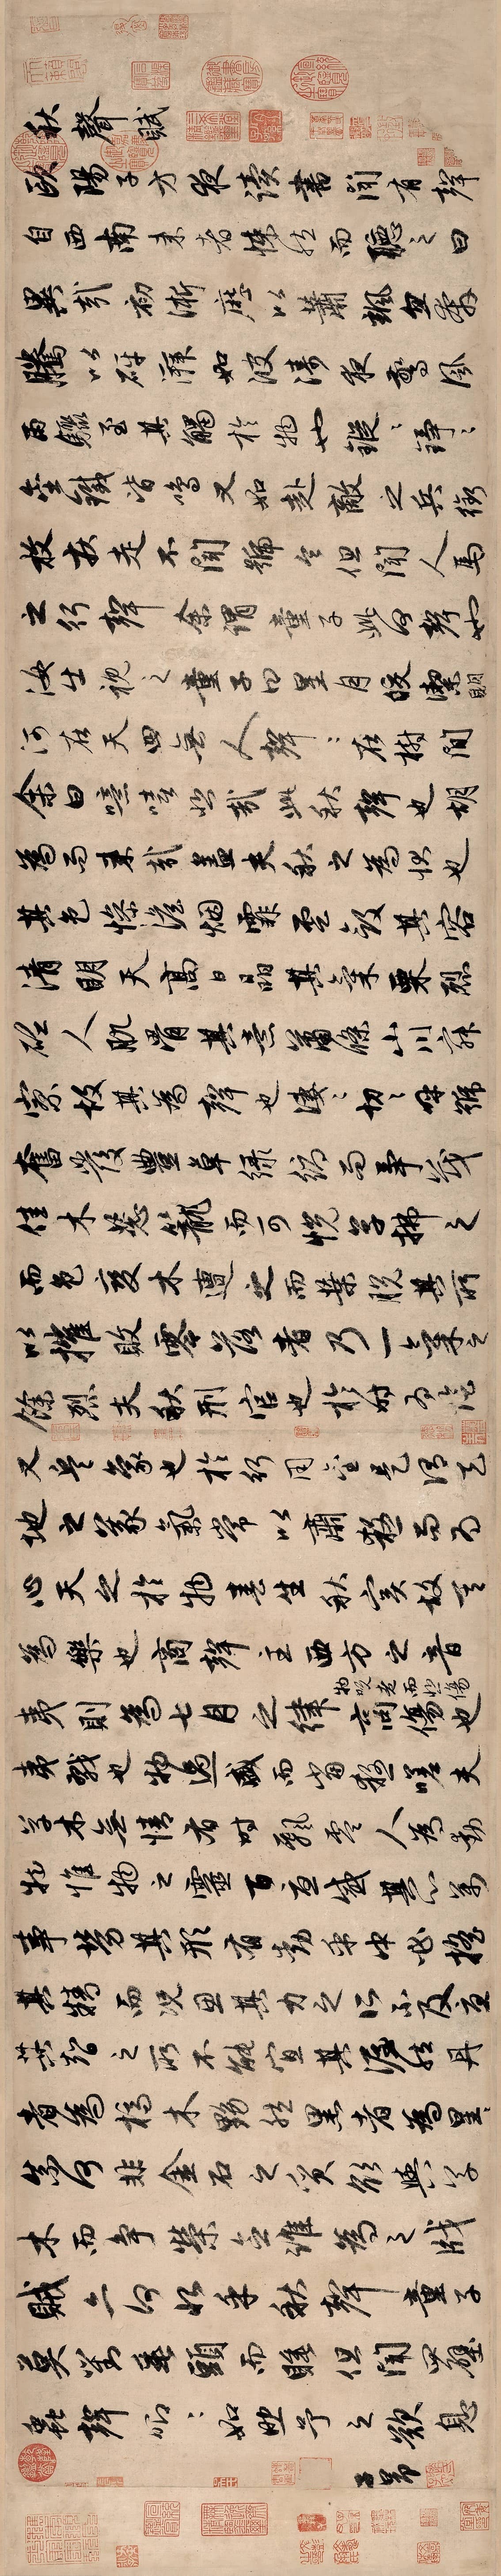 秋聲賦
歐陽子方夜讀書聞有聲
自西南來者悚然而聽之曰
異哉初淅瀝以蕭颯忽奔
騰以砰湃如波濤夜驚風
雨驟至其觸於物也鏦〻錚〻
金鐵皆鳴又如赴敵之兵銜
枚疾走不聞號令但聞人馬
之行聲余謂童子此何聲也
汝出視之童子曰星月皎潔明
河在天四無人聲〻在樹間
余曰噫嘻悲哉此秋聲也胡
為而來哉蓋夫秋之為狀也
其色慘淡烟霏雲斂其容
清明天高日晶其氣栗烈
砭人肌骨其意蕭條山川寂
寥故其為聲也淒〻切〻呼號
奮發豐草綠縟而爭茂
佳木葱籠而可悅草拂之
而色變木遭之而葉脫其所
以摧敗零落者乃一氣之
餘烈夫秋刑官也於時為陰
又兵象也於行用金是謂天
地之義氣常以肅殺而為
心天之於物春生秋實故其
為樂也商聲主西方之音
夷則為七月之律商傷也
物既老而悲傷
夷戮也物過盛而當殺嗟夫
草木無情有時飄零人為動
物惟物之靈百憂感其心萬
事勞其形有動乎中必搖
其精而況思其力之所不及憂
其智之所不能宜其渥然丹
者為槁木黟然黑者為星〻
奈何非金石之質欲與草
木而爭榮念誰為之戕
賊亦何恨乎秋聲童子
莫對垂頭而睡但聞四壁
蟲聲唧〻如助予之歎息
子昂